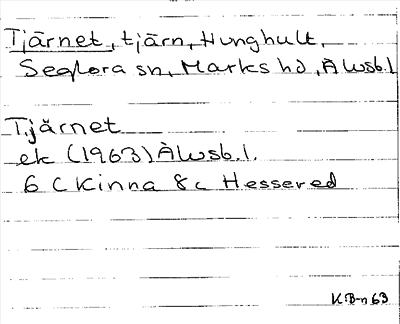 Tjärnet, tjärn, Hunghult,
Seglora sn, Marks hd, Älvsb.l
Tjärnet
ek (1963) Älvsb.l.
6 C Kinna 8c Hessered
KB-n 63